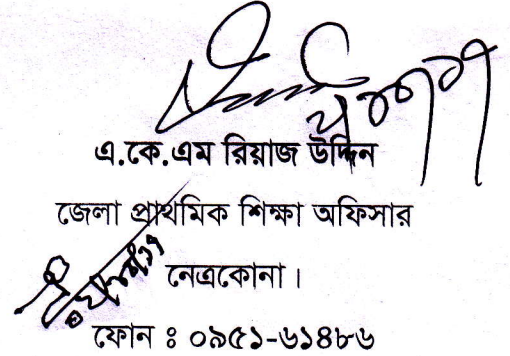 এ.কে.এম রিয়াজ উদ্দিন
জেলা প্রাথমিক শিক্ষা অফিসার
নেত্রকোনা।
ফোন ঃ ০৯৫১-৬১৪৮৬